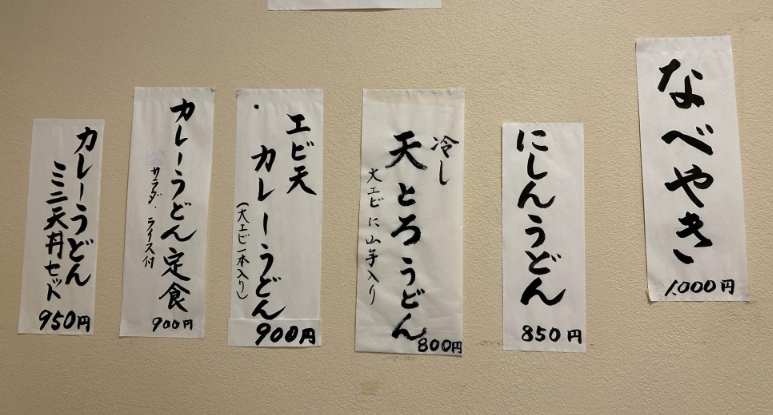 なべやき
1,000円
にしんうどん
850円
冷し
天とろうどん
大エビに山芋入り
800円
エビ天
カレーうどん
(大エビ一本入り)
900円
カレーうどん定食
サラダ・ライス付
900円
カレーうどん
ミニ天丼セット
950円